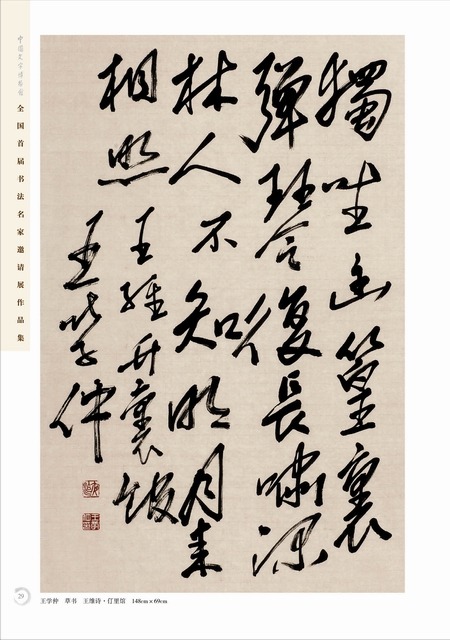 中国文字博物馆
全国首届书法名家邀请展作品集
獨坐幽篁裏
彈琴復長嘯深
林人不知明月来
相照 王維竹裏館
王学仲
29
王学仲 草书 王维诗·仃里馆 148cm×69cm